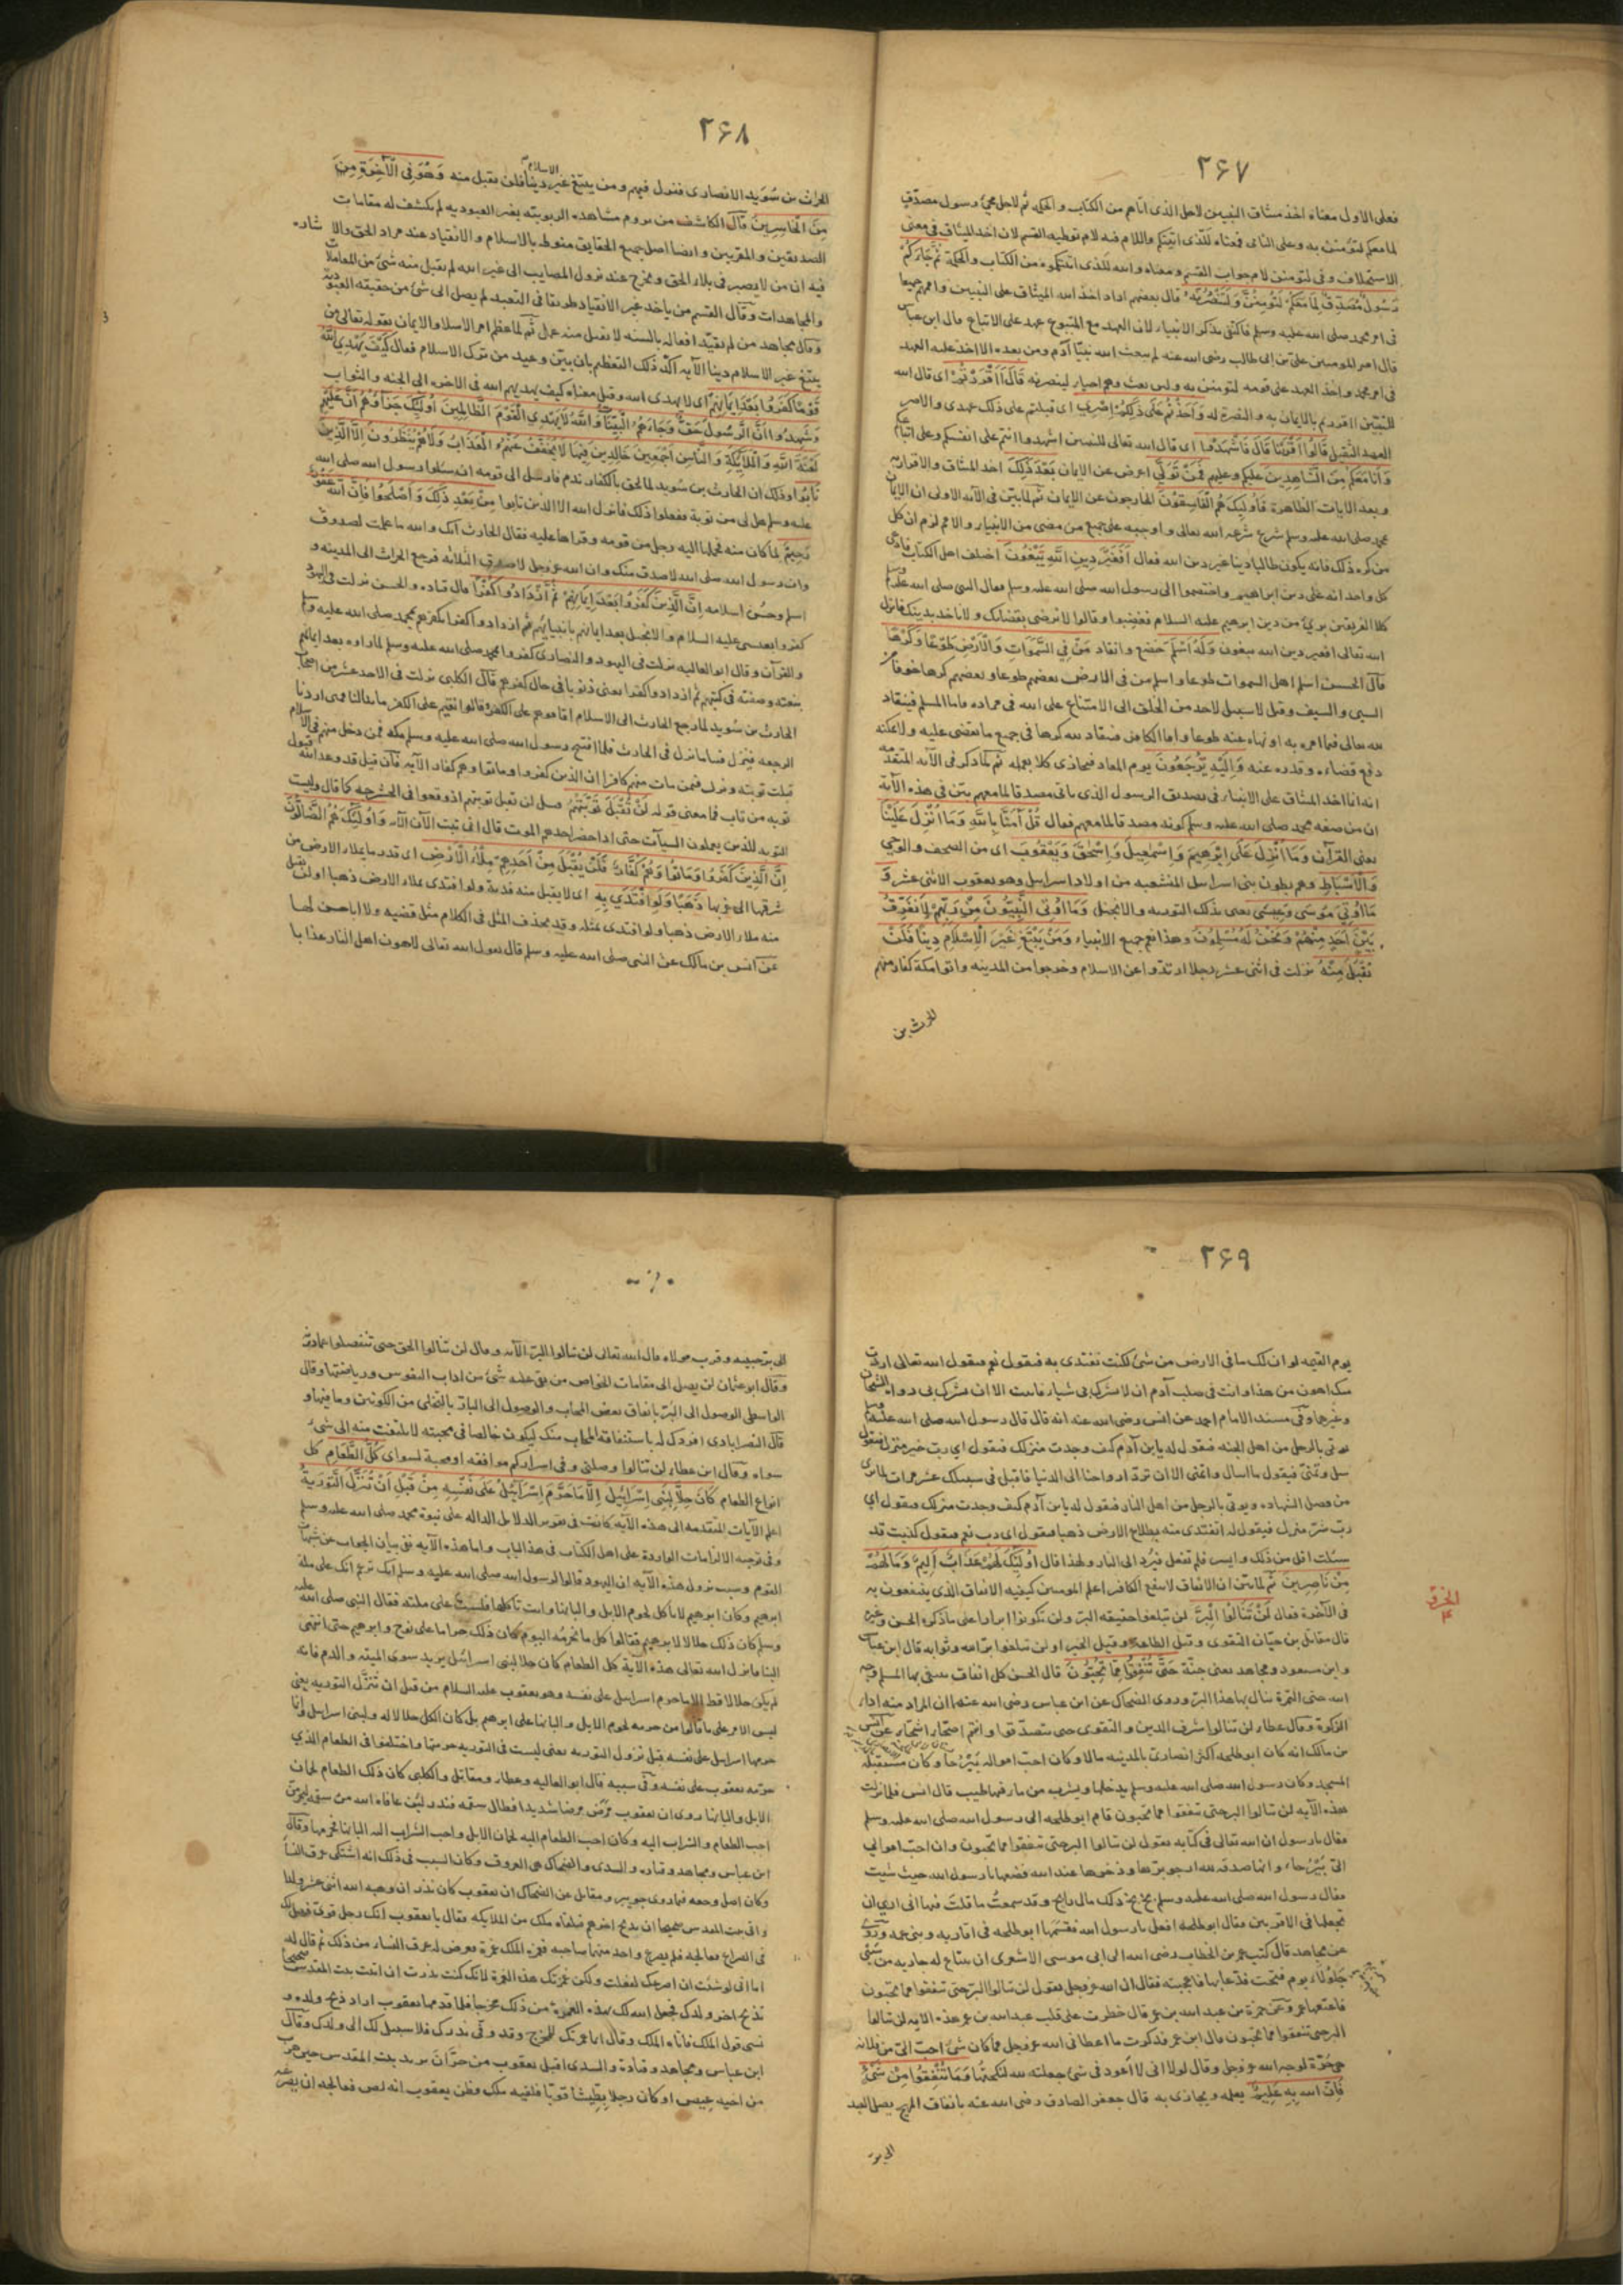 ٢۶٧
فعلى الاول معناه اخذ ميثاق النبيين لاجل الذى اتاهم من الكتاب والحكمه ثم لاجل مجئ رسول مصدق
لما معكم لتؤمنن به وعلى الثانى فمعناه للذى اتيتكم واللام فيه لام توطيه القسم لان اخذ الميثاق فى معنى
الاستحلاف وفى لتومنن لام جواب القسم ومعناه والله للذى اتيتكموه من الكتاب والحكمة ثُمَّ جَاءَكُمْ
رَسُولٌ مُصَدِّقٌ لِمَا مَعَكُمْ لَتُؤْمِنُنَّ بِهِ وَلَتَنْصُرُنَّهُ قال بعضهم اراد اخذ الله الميثاق على النبيين واممهم جميعا
فى امر محمد صلى الله عليه وسلم فاكتفى بذكر الانبياء لان العهد مع المتبوع عهد على الاتباع قال ابن عباس
قال امير المومنين على بن ابى طالب رضى الله عنه لم يبعث الله نبيّا آدم ومن بعده الا اخذ عليه العهد
فى امر محمد واخذ العهد على قومه لتومنن به ولين بعث وهم احياء لينصرنه قَالَ أَأَقْرَرْتُمْ اى قال الله
للنبيّين ااقررتم بالايمان به والنصرة له وَأَخَذْتُمْ عَلَى ذَلِكُمْ إِصْرِي اى قبلتم على ذلك عهدى والاصر
العهد الثقيل قَالُوا أَقْرَرْنَا قَالَ فَاشْهَدُوا اى قال الله تعالى للنبيين اشهدوا انتم على انفسكم وعلى اتباعكم
وَأَنَا مَعَكُمْ مِنَ الشَّاهِدِينَ عليكم وعليهم فَمَنْ تَوَلَّى اعرض عن الايمان بَعْدَ ذَلِكَ اخذ الميثاق والاقرار به
وبعد الايات الظاهرة فَأُولَئِكَ هُمُ الْفَاسِقُونَ الخارجون عن الايمان ثم لما بيّن فى الآيه الاولى ان الايمان
محمد صلى الله عليه وسلم شرع شرعه الله تعالى واوجبه على جميع من مضى من الانبياء والامم لزم ان كل
من كره ذلك فانه يكون طالبا دينا غير دين الله فقال أَفَغَيْرَ دِينِ اللَّهِ يَبْغُونَ اختلف اهل الكتاب فادعى
كل واحد انه على دين ابراهيم واختصموا الى رسول الله صلى الله عليه وسلم فقال النبى صلى الله عليه وسلم
كلا الفريقين برئ من دين ابرهيم عليه السلام فغضبوا وقالوا لا نرضى بقضائك ولا ناخذ بدينك فانزل
الله تعالى افغير دين الله يبغون وَلَهُ أَسْلَمَ خضع وانقاد مَنْ فِي السَّمَوَاتِ وَالْأَرْضِ طَوْعًا وَكَرْهًا
قال الحسن اسلم اهل السموات طوعا واسلم من فى الارض بعضهم طوعا وبعضهم كرها خوفا من
السبى والسيف وقيل لا سبيل لاحد من الخلق الى الامتناع على الله فى مراده فاما المسلم فينقاد
لله تعالى فيما امره به او نهاه عنه طوعا واما الكافر فينقاد لله كرها فى جميع ما يقضى عليه ولا يمكنه
دفع قضاءه وقدره عنه وَإِلَيْهِ تُرْجَعُونَ يوم المعاد فيجازى كلا بعمله ثم لما ذكر فى الآيه المتقدمه
انه انما اخذ الميثاق على الانبياء فى تصديق الرسول الذى ياتى مصدقا لما معهم بيّن فى هذه الآية
ان من صفه محمد صلى الله عليه وسلم كونه مصدقا لما معهم فقال قُلْ آمَنَّا بِاللَّهِ وَمَا أُنْزِلَ عَلَيْنَا
يعنى القرآن وَمَا أُنْزِلَ عَلَى إِبْرَهِيمَ وَإِسْمَعِيلَ وَإِسْحَقَ وَيَعْقُوبَ اى من الصحف والوحى
وَالْأَسْبَاطِ وهم بطون بنى اسرايل المنشعبه من اولاد اسرايل وهو يعقوب الاثنى عشر وَ
مَا أُوتِيَ مُوسَى وَعِيسَى يعنى بذلك التوريه والانجيل وَمَا أُوتِيَ النَّبِيُّونَ مِنْ رَبِّهِمْ لَا نُفَرِّقُ
بَيْنَ أَحَدٍ مِنْهُمْ وَنَحْنُ لَهُ مُسْلِمُونَ وهذا مع جميع الانبياء وَمَنْ يَبْتَغِ غَيْرَ الْإِسْلَامِ دِينًا فَلَنْ
يُقْبَلَ مِنْهُ نزلت فى اثنى عشر رجلا ارتدّوا عن الاسلام وخرجوا من المدينه واتوا مكة كفارا منهم
الحرث بن
٢۶٨
الحرث بن سُوَيد الانصارى فنزل فيهم ومن يبتغ غير الاسلام دينا فلن يقبل منه وَهُوَ فِي الْآخِرَةِ مِنَ
مِنَ الْخَاسِرِينَ قال الكاشف من يروم مشاهده الربوبيه بغير العبوديه لم يكشف له مقامات
الصديقين والمقربين وايضا اصل جميع الحقايق منوط بالاسلام والانقياد عند مراد الحق والاشاره
فيه ان من لا يصبر فى بلاء الحق ويخرج عند نزول المصايب الى غير الله لم يقبل منه شئ من المعاملات
والمجاهدات وقال القسم من ياخذ غير الانقياد طريقا فى التعبد لم يصل الى شئ من حقيقه العبوديه
وقال مجاهد من لم يقيّد افعاله بالسنه لا يقبل منه عمل ثم لما عظم امر الاسلام والايمان بقوله تعالى ومن
يبتغ غير الاسلام دينا الآيه اكّد ذلك التعظيم بان بيّن وعيد من ترك الاسلام فقال كَيْفَ يَهْدِي اللَّهُ
قَوْمًا كَفَرُوا بَعْدَ إِيمَانِهِمْ اى لا يهدى الله وقيل معناه كيف يهديهم الله فى الاخره الى الجنه والثواب
وَشَهِدُوا أَنَّ الرَّسُولَ حَقٌّ وَجَاءَهُمُ الْبَيِّنَاتُ وَاللَّهُ لَا يَهْدِي الْقَوْمَ الظَّالِمِينَ أُولَئِكَ جَزَاؤُهُمْ أَنَّ عَلَيْهِمْ
لَعْنَةَ اللَّهِ وَالْمَلَائِكَةِ وَالنَّاسِ أَجْمَعِينَ خَالِدِينَ فِيهَا لَا يُخَفَّفُ عَنْهُمُ الْعَذَابُ وَلَا هُمْ يُنْظَرُونَ إِلَّا الَّذِينَ
تَابُوا وذلك ان الحارث بن سُويد لما لحق بالكفار ندم فارسل الى قومه ان سلوا رسول الله صلى الله
عليه وسلم هل لى من توبة ففعلوا ذلك فانزل الله الا الذين تابوا مِنْ بَعْدِ ذَلِكَ وَأَصْلَحُوا فَإِنَّ اللَّهَ غَفُورٌ
رَحِيمٌ لما كان منه فحملها اليه رجل من قومه وقراها عليه فقال الحارث انك والله ما علمت لصدوق
وان رسول الله صلى الله لاصدق منك وان الله عز وجل لاصدق الثلاثه فرجع الحرث الى المدينه و
اسلم وحسُن اسلامه إِنَّ الَّذِينَ كَفَرُوا بَعْدَ إِيمَانِهِمْ ثُمَّ ازْدَادُوا كُفْرًا قال قتاده والحسن نزلت فى اليهود
كفروا بعيسى عليه السلام والانجيل بعد ايمانهم بانبيائهم ثم ازدادوا كفرا بكفرهم بمحمد صلى الله عليه وسلم
والقرآن وقال ابو العاليه نزلت فى اليهود والنصارى كفروا بمحمد صلى الله عليه وسلم لما راوه بعد ايمانهم
بنعته وصفته فى كتبهم ثم ازدادوا كفرا يعنى ذنوبا فى حال كفرهم قال الكلبى نزلت فى الاحد عشر من اصحاب
الحارث بن سُويد لما رجع الحارث الى الاسلام اقاموا هم على الكفر وقالوا نقيم على الكفر ما بدا لنا فمتى اردنا
الرجعه فينزل فينا ما نزل فى الحارث فلما افتتح رسول الله صلى الله عليه وسلم مكه فمن دخل منهم فى الاسلام
قبلت توبته ونزل فيمن مات منهم كافرا ان الذين كفروا وماتوا وهم كفار الآيه فان قيل قد وعد الله قبول
توبه من تاب فما معنى قوله لَنْ تُقْبَلَ تَوْبَتُهُمْ قيل لن تقبل توبتهم اذ وقعوا فى الحشرجه كما قال وليست
التوبه للذين يعملون السيآت حتى اذا حضر احدهم الموت قال انى تبت الآن الآيه وَأُولَئِكَ هُمُ الضَّالُّونَ
إِنَّ الَّذِينَ كَفَرُوا وَمَاتُوا وَهُمْ كُفَّارٌ فَلَنْ يُقْبَلَ مِنْ أَحَدِهِمْ مِلْءُ الْأَرْضِ اى قدر ما يملاء الارض من
شرقها الى غربها ذَهَبًا وَلَوِ افْتَدَى بِهِ اى لا يقبل منه فدية ولو افتدى بملاء الارض ذهبا او لن يقبل
منه ملاء الارض ذهبا ولو افتدى بمثله وقد يحذف المثل فى الكلام مثل قضيه ولا ابا حسن لها
عن انس بن مالك عن النبى صلى الله عليه وسلم قال يقول الله تعالى لاهون اهل النار عذابا
٢۶٩
يوم القيمه لو ان لك ما فى الارض من شئ اكنت تفتدى به فيقول نعم فيقول الله تعالى اردت
منك اهون من هذا وانت فى صلب آدم ان لا تشرك بى شيا فابيت الا ان تشرك بى رواه الشيخان
وغيرهما وفى مسند الامام احمد عن انس رضى الله عنه انه قال قال رسول الله صلى الله عليه وسلم
يوتى بالرجل من اهل الجنه فيقول له يا بن آدم كيف وجدت منزلك فيقول اى رب خير منزل فيقول
سل وتمنّ فيقول ما اسال واتمنى الا ان تردّ ارواحنا الى الدنيا فاقتل فى سبيلك عشر مرات لما يرى
من فضل الشهاده ويوتى بالرجل من اهل النار فيقول له يا بن آدم كيف وجدت منزلك فيقول اى
ربّ شرّ منزل فيقول له اتفتدى منه بطلاع الارض ذهبا فيقول اى رب نعم فيقول كذبت قد
سئلت اقل من ذلك وايسر فلم تفعل فيُرد الى النار ولهذا قال أُولَئِكَ لَهُمْ عَذَابٌ أَلِيمٌ وَمَا لَهُمْ
مِنْ نَاصِرِينَ ثم لما بيّن ان الانفاق لا ينفع الكافر اعلم المومنين كيفيه الانفاق الذى ينتفعون به
فى الآخرة فقال لَنْ تَنَالُوا الْبِرَّ لن تبلغوا حقيقه البر ولن تكونوا ابرارا على ما ذكره الحسن وغيره
قال مقاتل بن حيّان التقوى وقيل الطاعه وقيل الخير او لن تبلغوا برّ الله وثوابه قال ابن عباس
وابن مسعود ومجاهد يعنى جنّة حَتَّى تُنْفِقُوا مِمَّا تُحِبُّونَ قال الحسن كل انفاق يبتغى بها المسلم وجه
الله حتى التمرة ينال بها هذا البر وروى الضحاك عن ابن عباس رضى الله عنهما ان المراد منه اداء
الزكوة وقال عطاء لن تنالوا شرف الدين والتقوى حتى تتصدّقوا وانتم اصحّاء اشحّاء عن انس
بن مالك انه كان ابو طلحه اكثر انصارى بالمدينه مالا وكان احبّ امواله بَيْرُحا وكان مستقبلة
المسجد وكان رسول الله صلى الله عليه وسلم يدخلها ويشرب من ماء فيها طيب قال انس فلما نزلت
هذه الآيه لن تنالوا البر حتى تنفقوا مما تحبون قام ابو طلحه الى رسول الله صلى الله عليه وسلم
فقال يا رسول ان الله تعالى فى كتابه يقول لن تنالوا البر حتى تنفقوا مما تحبون وان احبّ اموالى
الىّ بَيْرُحاء وانها صدقه لله ارجو برّها وذخرها عند الله فضعها يا رسول الله حيث شيت
فقال رسول الله صلى الله عليه وسلم بخ بخ ذلك مال رابح وقد سمعتُ ما قلت فيها انى ارى ان
تجعلها فى الاقربين فقال ابو طلحه افعل يا رسول الله فقسمَها ابو طلحه فى اقاربه وبنى عمه ورُوى
عن مجاهد قال كتب عمر بن الخطاب رضى الله الى ابى موسى الاشعرى ان يبتاع له جاريه من سَبْى
جَلُولاء يوم فتحت فدعا بها فاعجبته فقال ان الله عز وجل يقول لن تنالوا البر حتى تنفقوا مما تحبون
فاعتقها عمر وعن حمزة بن عبد الله بن عمر قال خطرت على قلب عبد الله بن عمر هذه الايه لن تنالوا
البر حتى تنفقوا مما تحبون قال ابن عمر فذكرت ما اعطانى الله عز وجل فما كان شئ احبّ الىّ من فلانه
هى حُرّة لوجه الله عز وجل وقال لولا انى لا اعود فى شئ جعلته لله لنكحتها وَمَا تُنْفِقُوا مِنْ شَيْءٍ
فَإِنَّ اللَّهَ بِهِ عَلِيمٌ يعلمه ويجازى به قال جعفر الصادق رضى الله عنه بانفاق المهج يصل العبد
الى بر
الجزؤ
۴
الى بر حبيبه وقرب مولاه قال الله تعالى لن تنالوا البر الآيه وقال لن تنالوا الحق حتى تنفصلوا عما دونه
وقال ابو عثمان لن يصل الى مقامات الخواص من بقى عليه شئ من اداب النفوس ورياضتها وقال
الواسطى الوصول الى البرّ بانفاق بعض المحاب والوصول الى البارّ بالتخلى من الكونين وما فيها و
قال النصرابادى افردك له باستنفاقه المحاب منك ليكون خالصا فى محبته لا يلتفت منه الى شئ
سواه وقال ابن عطاء لن تنالوا وصلتى وفى اسراركم موافقه او محبة لسواى كُلُّ الطَّعَامِ كل
انواع الطعام كَانَ حِلًّا لِبَنِي إِسْرَائِيلَ إِلَّا مَا حَرَّمَ إِسْرَائِيلُ عَلَى نَفْسِهِ مِنْ قَبْلِ أَنْ تُنَزَّلَ التَّوْرَيةُ
اعلم الآيات المتقدمه الى هذه الآيه كانت فى تقرير الدلايل الداله على نبوة محمد صلى الله عليه وسلم
وفى توجيه الالزامات الوارده على اهل الكتاب فى هذا الباب واما هذه الآيه ففى بيان الجواب عن شبهات
القوم وسبب نزول هذه الآيه ان اليهود قالوا لرسول الله صلى الله عليه وسلم انك تزعم انك على ملة
ابرهيم وكان ابرهيم لا ياكل لحوم الابل والبانها وانت تاكلها فلست على ملته فقال النبى صلى الله عليه
وسلم كان ذلك حلالا لابرهيم فقالوا كل ما نحرّمه اليوم كان ذلك حراما على نوح وابرهيم حتى انتهى
الينا فانزل الله تعالى هذه الآية كل الطعام كان حلا لبنى اسرائيل يريد سوى الميته والدم فانه
لم يكن حلالا قط الا ما حرم اسرايل على نفسه وهو يعقوب عليه السلام من قبل ان تنزّل التوريه يعنى
ليس الامر على ما قالوا من حرمه لحوم الابل والبانها على ابرهيم بل كان الكل حلالا له ولبنى اسرايل وانما
حرمها اسرايل على نفسه قبل نزول التوريه يعنى ليست فى التوريه حرمتها واختلفوا فى الطعام الذى
حرّمه يعقوب على نفسه وفى سببه قال ابو العاليه وعطاء ومقاتل والكلبى كان ذلك الطعام لحمان
الابل والبانها روى ان يعقوب مَرِض مرضا شديدا فطال سقمه فنذر لئن عافاه الله من سقمه ليحرمنّ
احب الطعام والشراب اليه وكان احب الطعام اليه لحمان الابل واحب الشراب اليه البانها فحرمها وقال
ابن عباس ومجاهد وقتاده والسدى والضحاك هى العروق وكان السبب فى ذلك انه اشتكى عرق النسا
وكان اصل وجعه فيما روى جويبر ومقاتل عن الضحاك ان يعقوب كان نذر ان وهبه الله اثنى عشر ولدا
واتى بيت المقدس صحيحا ان يذبح اخرهم فتلقاه ملك من الملايكه فقال يا يعقوب انك رجل قوى فهل لك
فى الصراع فعالجه فلم يصرع واحد منهما صاحبه فغمزه الملك غمزة فعرض له عرق النساء من ذلك ثم قال له
اما انى لو شئت ان اصرعك لفعلت ولكن غمزتك هذه الغمزة لانك كنت نذرت ان اتيت بيت المقدس صحيحا
تذبح اخر ولدك فجعل الله لك بهذه الغمزة من ذلك مخرجا فلما قدمها يعقوب اراد ذبح ولده و
نسى قول الملك فاتاه الملك وقال انما غمزتك للمخرج وقد وفى نذرك فلا سبيل لك الى ولدك وقال
ابن عباس ومجاهد وقتادة والسدى اقبل يعقوب من حرّان يريد بيت المقدس حين هرب
من اخيه عِيص وكان رجلا بطيشا قويّا فلقيه ملك وظن يعقوب انه لص فعالجه ان يصرعه